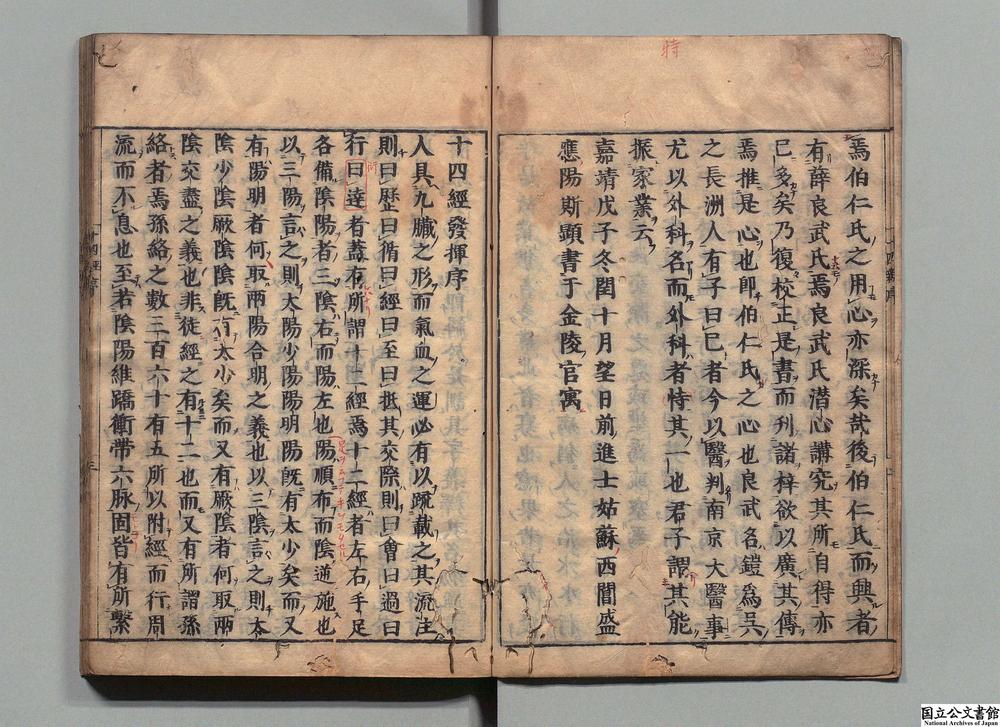 焉伯仁氏之用心亦深矣哉後伯仁氏而興者
有薛良武氏焉良武氏潜心講究其所自得亦
已多矣乃復校正是書而刋諸梓欲以廣其傳
焉推是心也卽伯仁氏之心也良武名鎧爲吳
之長洲人有子曰已者今以醫判南京大醫事
尤以外科名而外科者特其一也君子謂其能
振家業云
嘉靖戊子冬閏十月望日前進士姑蘇西閶盛
應陽斯顕書于金陵官寓
十四經發揮序
人具九臟之形而氣血之運必有以䟽載之其流注
則曰歷曰循曰經曰至曰抵其交際則曰會曰過曰
行曰達者蓋有所謂十二經焉十二經者左右手足
各備陰陽者三陰右而陽左也陽順布而陰逆施也
以三陽言之則太陽少陽陽明陽旣有太少矣而又
有陽明者何取兩陽合明之義也以三陰言之則太
陰少陰厥陰陰旣有太少矣而又有厥陰者何取兩
陰交盡之義也非徒經之有十二也而又有所謂孫
絡者焉孫絡之數三百六十有五所以附經而行周
流而不息也至若陰陽維蹻衝帶六脉固皆有所繫
特
国立公文書館
National Archives of Japan